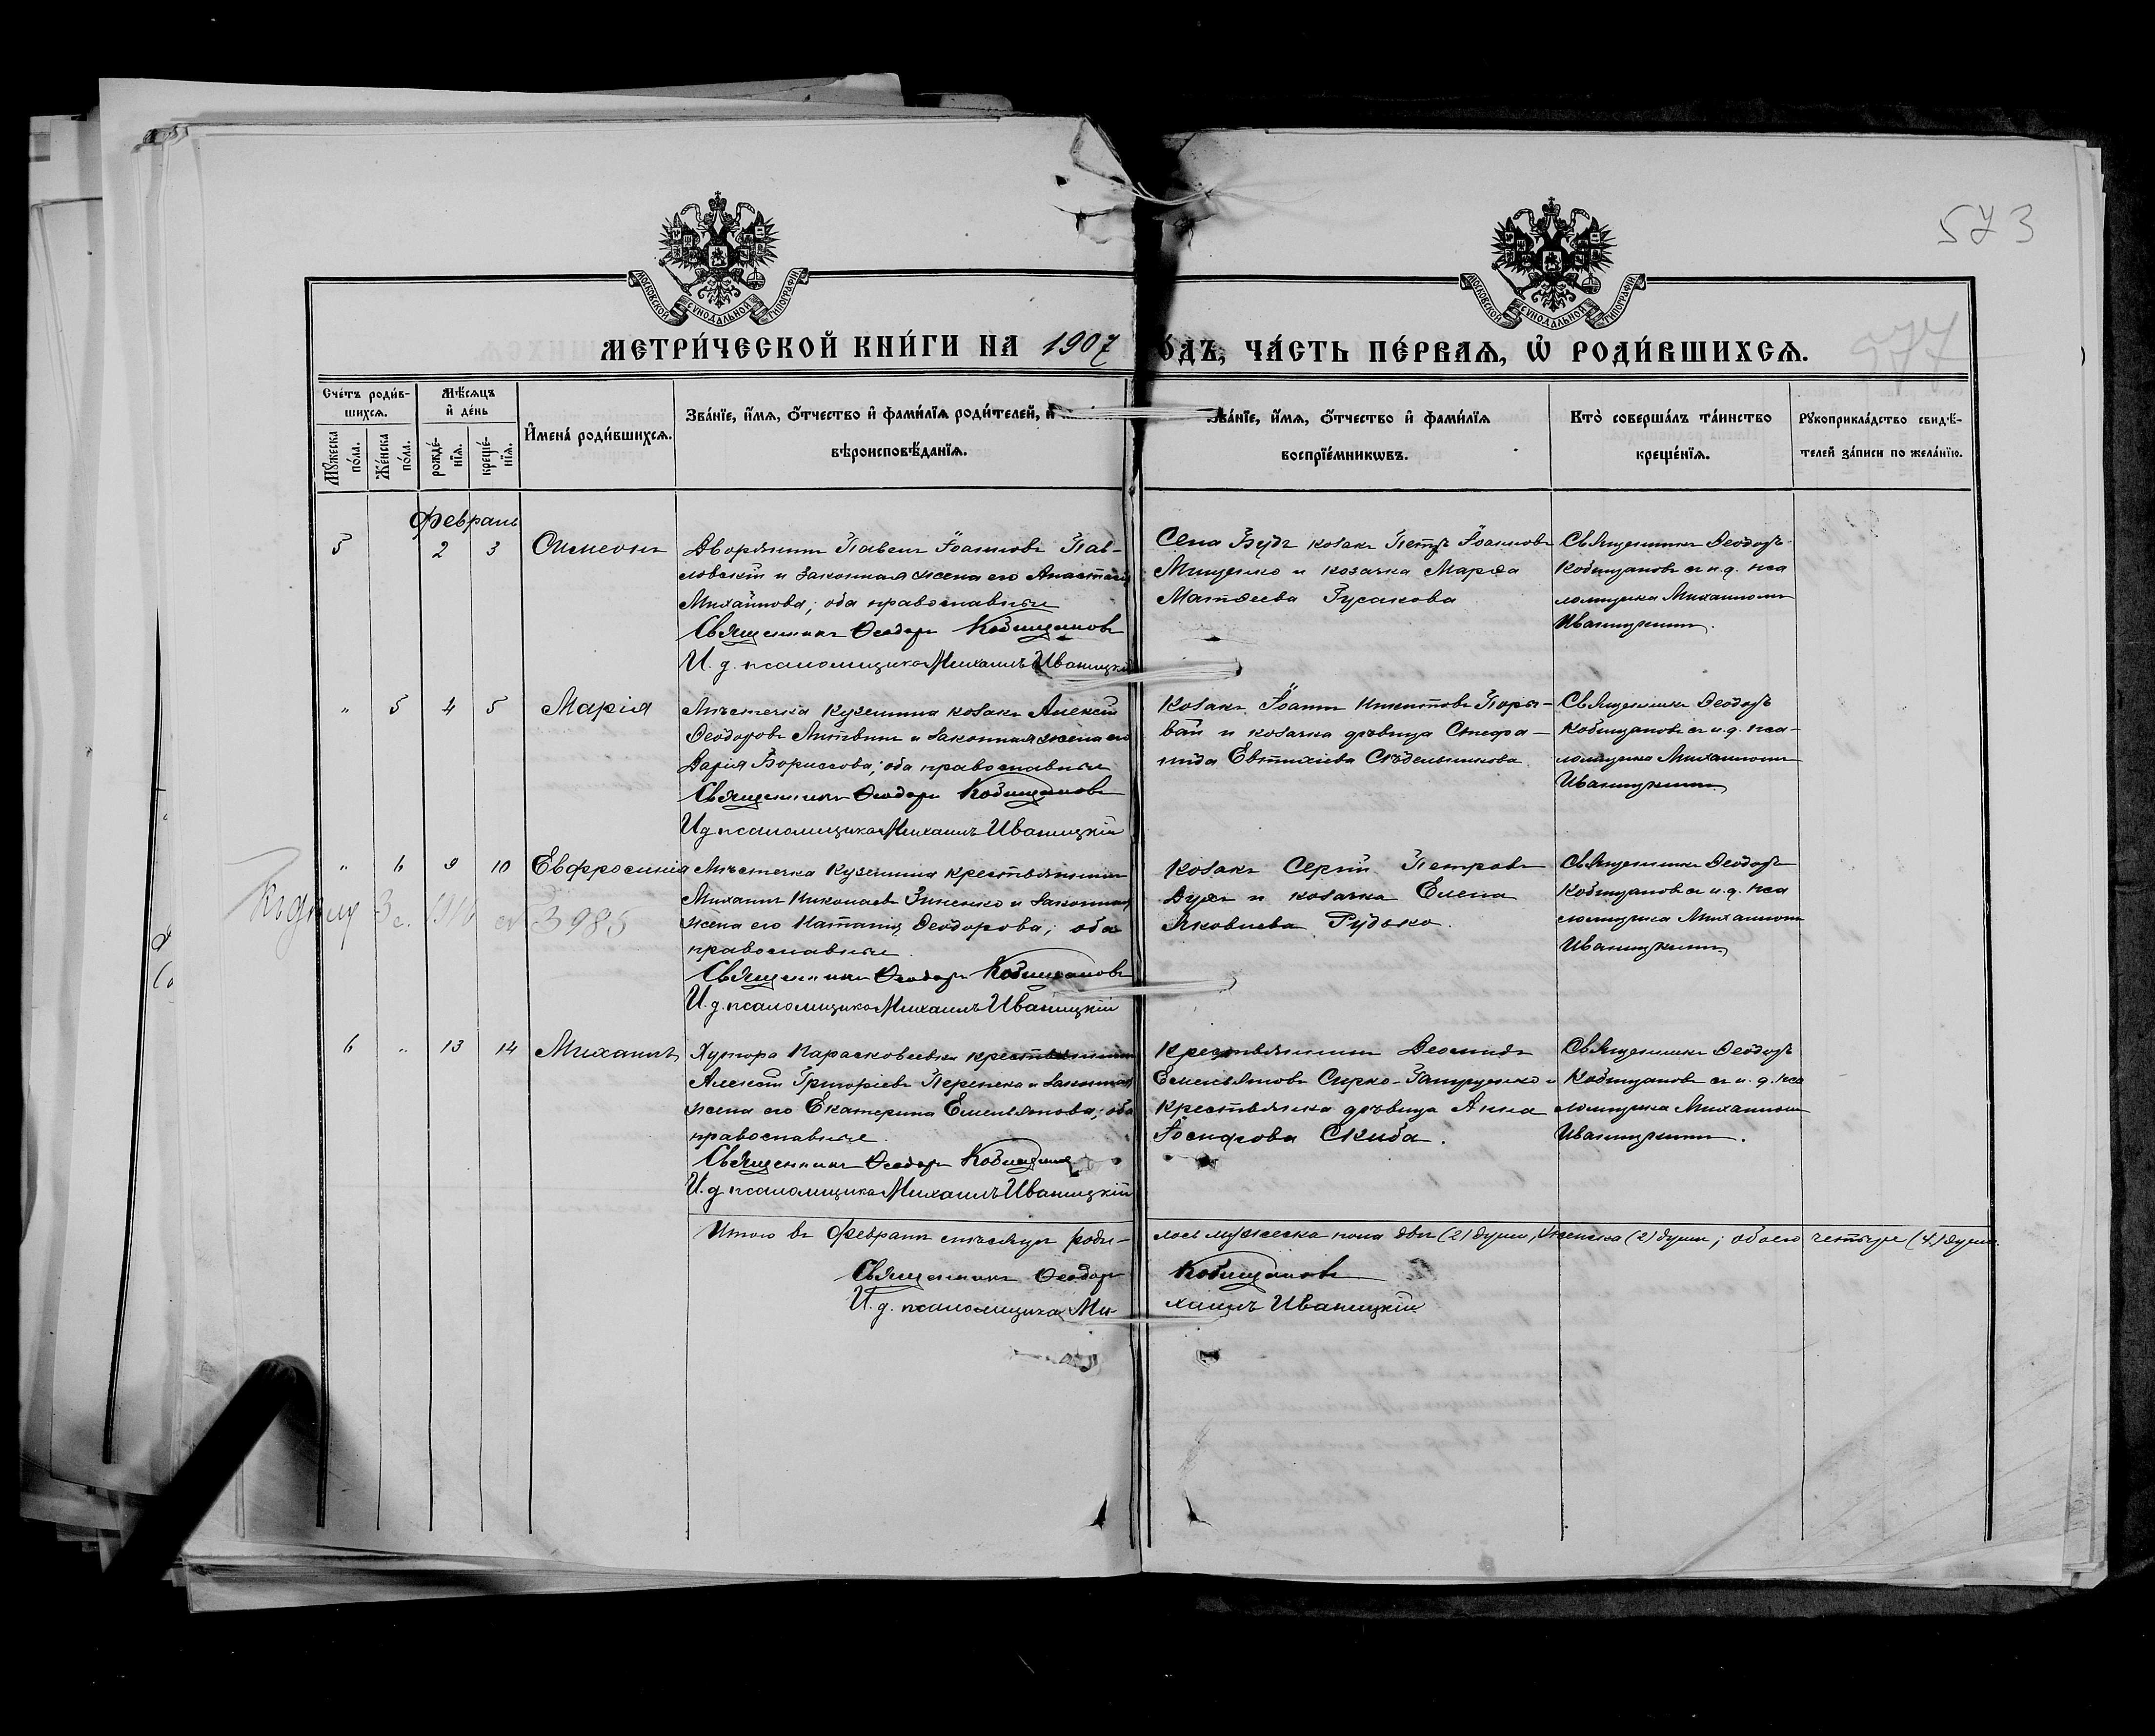 573
МОСКОВСКОЙ СУНОДАЛЬНОЙ ТИПОГРАФІИ
МОСКОВСКОЙ СУНОДАЛЬНОЙ ТИПОГРАФІИ
МЕТРИ́ЧЕСКОЙ КНИ́ГИ НА 1907 ОДЪ, ЧА́СТЬ ПЕ́РВАѦ, Ѡ҆ РОДИ́ВШИХСѦ.
977
Сче́тъ роди́в-
шихсѧ.
Мꙋ́жеска по́ла.
Же́нска по́ла.
Мѣ́сѧцъ
и҆ де́нь
рожде́-нїѧ.
креще́-нїѧ.
И҆мена̀ роди́вшихсѧ.
Зва́нїе, и҆́мѧ, ѻ҆́тчество и҆ фами́лїѧ роди́телей, и҆
вѣроисповѣ́данїѧ.
Зва́нїе, и҆́мѧ, ѻ҆́тчество и҆ фами́лїѧ
воспрїе́мникѡвъ.
Кто̀ соверша́лъ та́инство
креще́нїѧ.
Рꙋкоприкла́дство свидѣ́-
телей за́писи по жела́нїю.
Февраль
5 2 3 Симеонъ
Дворянинъ Павелъ Іоанновъ Пав-
ловскій и законная жена его Анастасія
Михайлова; оба православные
Священникъ Ѳеодоръ Кобищановъ
И. д. псаломщика Михаилъ Иваницкій
Села Будъ козакъ Петръ Іоанновъ
Мищенко и козачка Марѳа
Матѳеева Гусакова
Священникъ Ѳеодоръ
Кобищановъ съ и. д. пса
ломщика Михаиломъ
Иваницкимъ.
" 5 4 5 Марія
Мѣстечка Куземина козакъ Алексій
Ѳеодоровъ Литвинъ и законная жена его
Дарія Борисова; оба православные
Священникъ Ѳеодоръ Кобищановъ
И д псаломщика Михаилъ Иваницкій
Козакъ Іоаннъ Никитовъ Поры-
вай и козачка дѣвица Стефа-
нида Евтихіева Сѣдельникова
Священникъ Ѳеодоръ
Кобищановъ съ и. д. пса-
ломщика Михаиломъ
Иваницкимъ
" 6 9 10 Евфросинія
Мѣстечка Куземина крестьянинъ
Михаилъ Николаевъ Зиненко и законная
жена его Наталія Ѳеодорова; оба
православные.
Священникъ Ѳеодоръ Кобищановъ
И. д. псаломщика Михаилъ Иваницкій
Козакъ Сергій Петровъ
Духъ и козачка Елена
Яковлева Рудько.
Священникъ Ѳеодоръ
Кобищановъ съ и. д. пса
ломщика Михаиломъ
Иваницкимъ
3985
6 " 13 14 Михаилъ
Хутора Парасковѣевки крестьянинъ
Алексій Григоріевъ Перепека и законная
жена его Екатерина Емельянова; оба
православные.
Священникъ Ѳеодоръ Кобищанов
И. д псаломщика Михаилъ Иваницкій
Крестьянинъ Леонидъ
Емельяновъ Сирко-Запрудько и
крестьянка дѣвица Анна
Іосифова Скиба.
Священникъ Ѳеодоръ
Кобищановъ съ и. д. пса
ломщика Михаиломъ
Иваницкимъ.
Итого въ Февралѣ мѣсяцѣ роди- лось мужеска пола двѣ (2) души, женска (2) души; обоего четыре (4) души.
Священникъ Ѳеодоръ Кобищановъ
И. д. псаломщика Ми- хаилъ Иваницкій